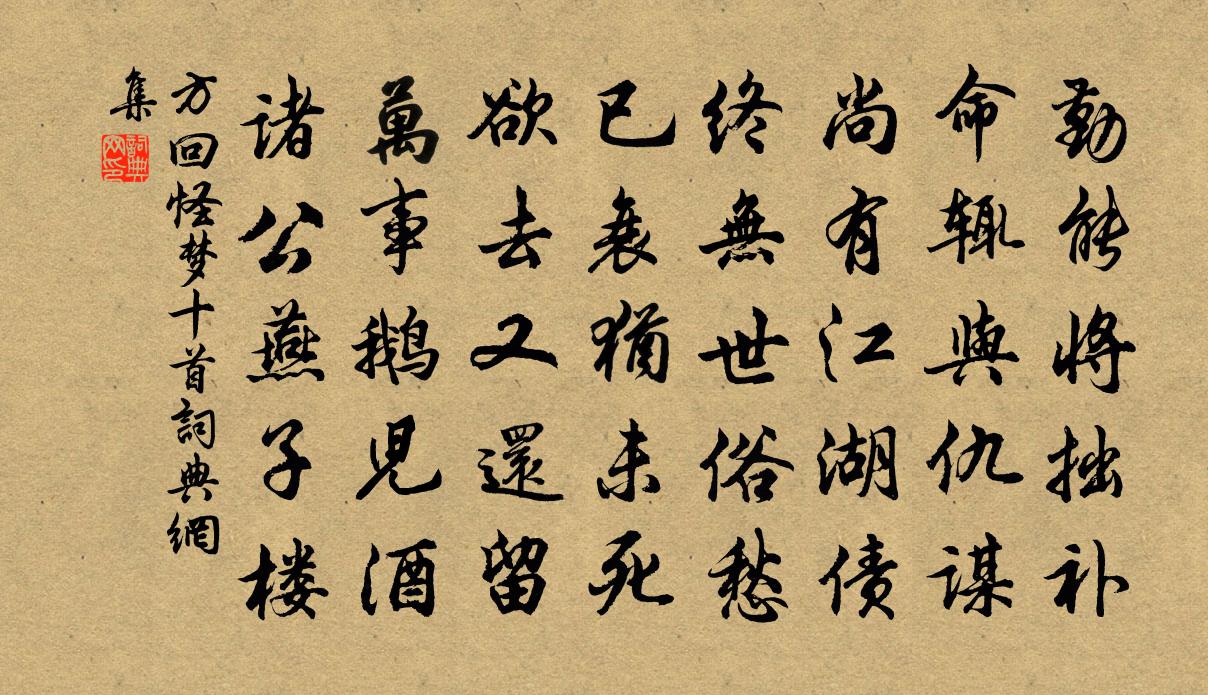 勤能将拙补
命辄與仇谋
尚有江湖债
终無世俗愁
已衰猶未死
欲去又還留
萬事鹅児酒
诸公燕子楼
方回怪梦十首詞典網
集
詞典网印